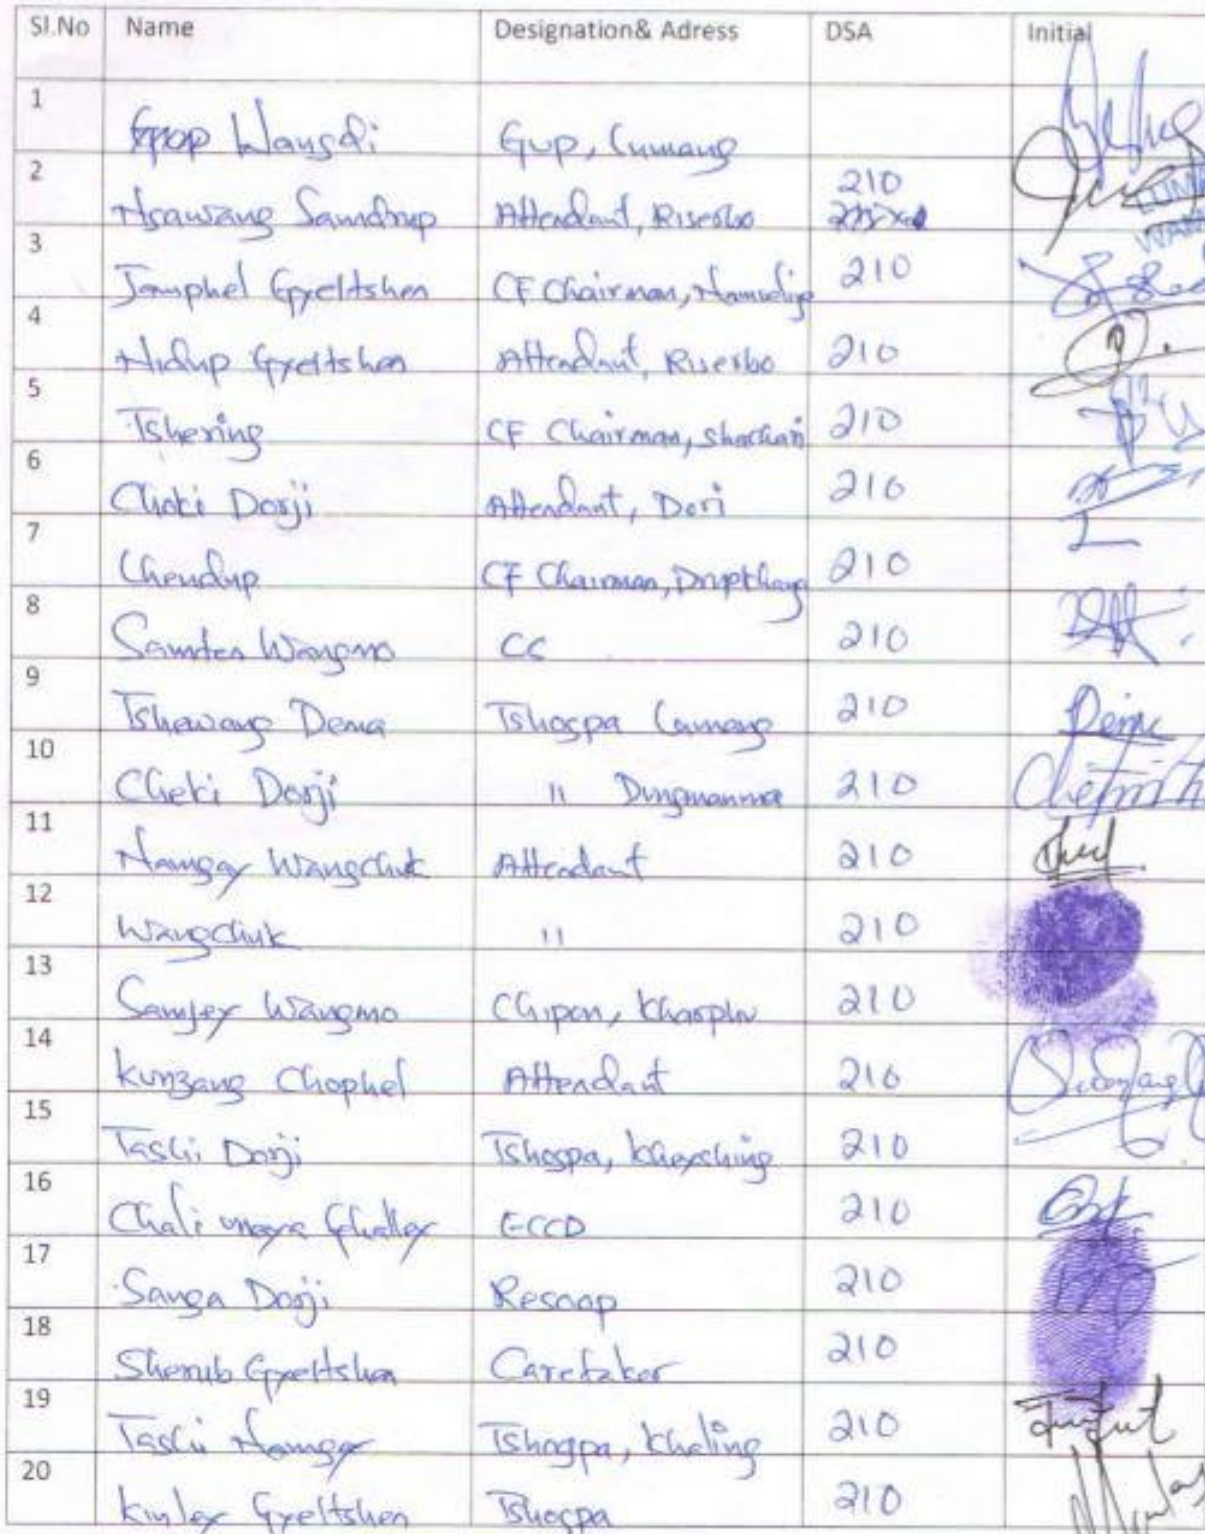 Sl.No Name Designation& Adress DSA Initial
1 Wangdi Gup, Lumang
2 Tsawang Samdrup Attendant, Riserbo 210
3 Jamphel Gyeltshen CF Chairman, 210
4 Nidup Gyeltshen Attendant, Riserbo 210
5 Tshering CF Chairman, 210
6 Choki Dorji Attendant, Dori 210
7 Chendup CF Chairman, 210
8 Samten Wangmo CC 210
9 Tshewang Dema Tshogpa Lumang 210
10 Cheki Dorji " Dungmanma 210
11 Namgay Wangchuk Attendant 210
12 Wangchuk " 210
13 Samjey Wangmo Chipon, Kharphu 210
14 Kunzang Chophel Attendant 210
15 Tashi Dorji Tshogpa, 210
16 Chali maya Ghalley ECCD 210
17 Sanga Dorji Resoop 210
18 Sherub Gyeltshen Caretaker 210
19 Tashi Namgay Tshogpa, Kheling 210
20 Kinley Gyeltshen Tshogpa 210